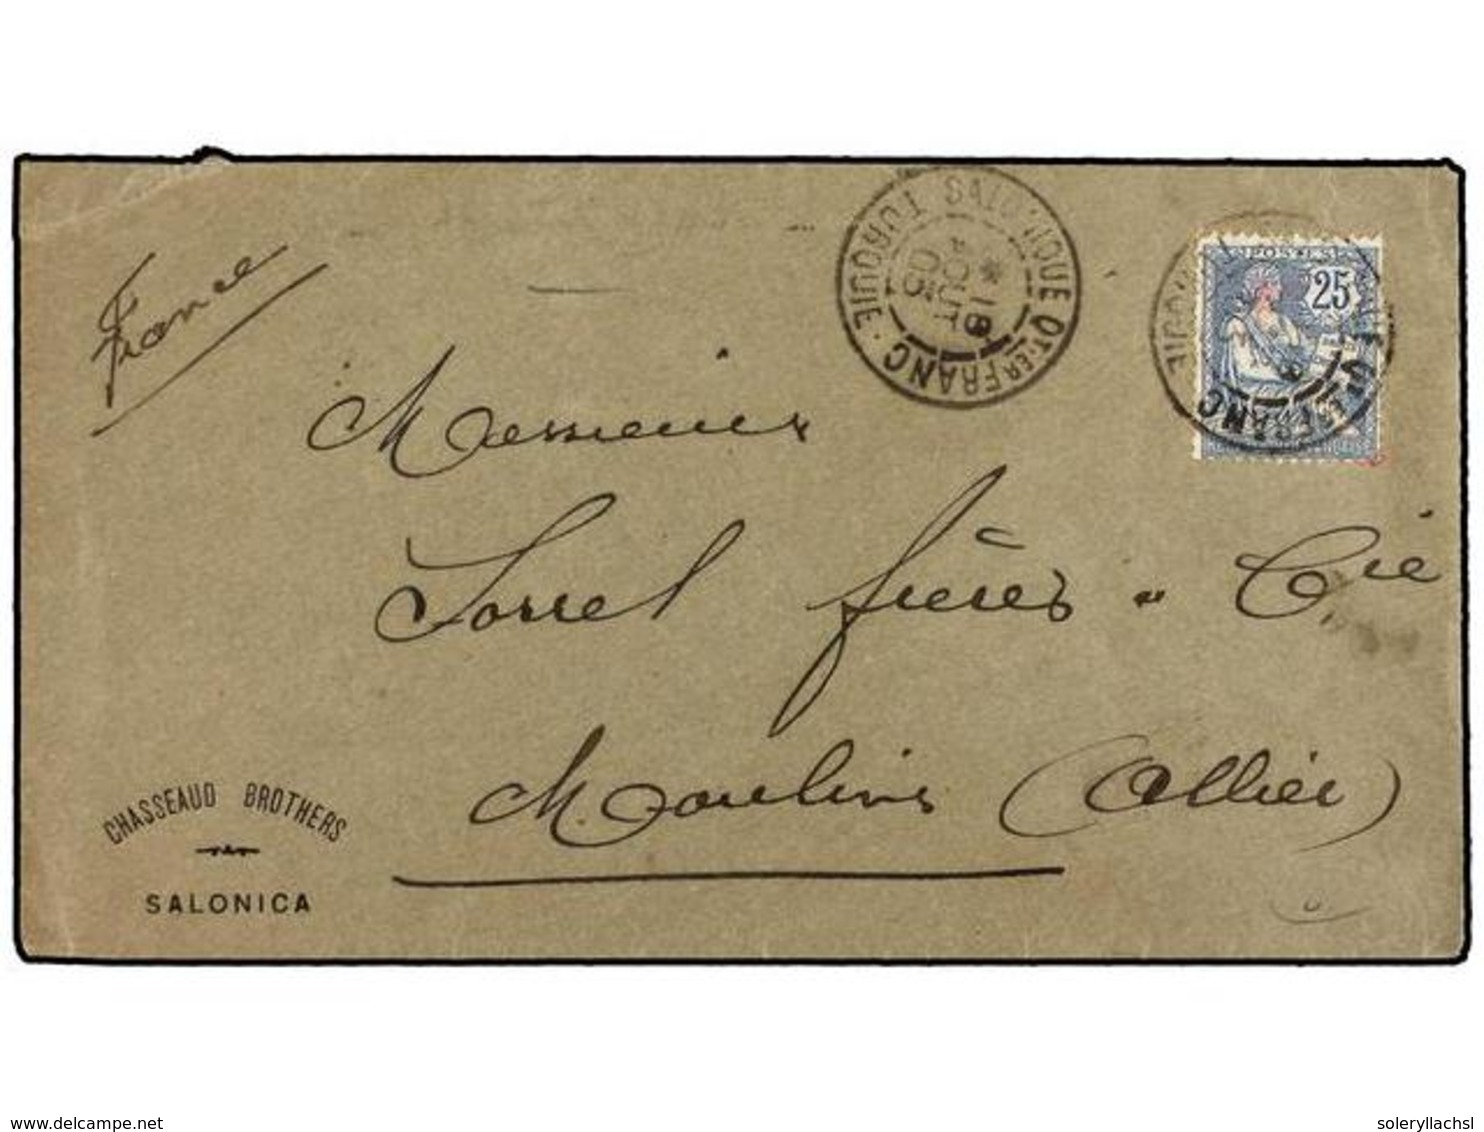 France
SALONIQUE QT-ER FRANC · TURQUIE ·
* 18
4
AOUT
05
POSTES
25
Messieurs
Sorrel frères & Cie
Moulins (Allier)
CHASSEAUD BROTHERS
SALONICA
www.delcampe.net
soleryllachsl